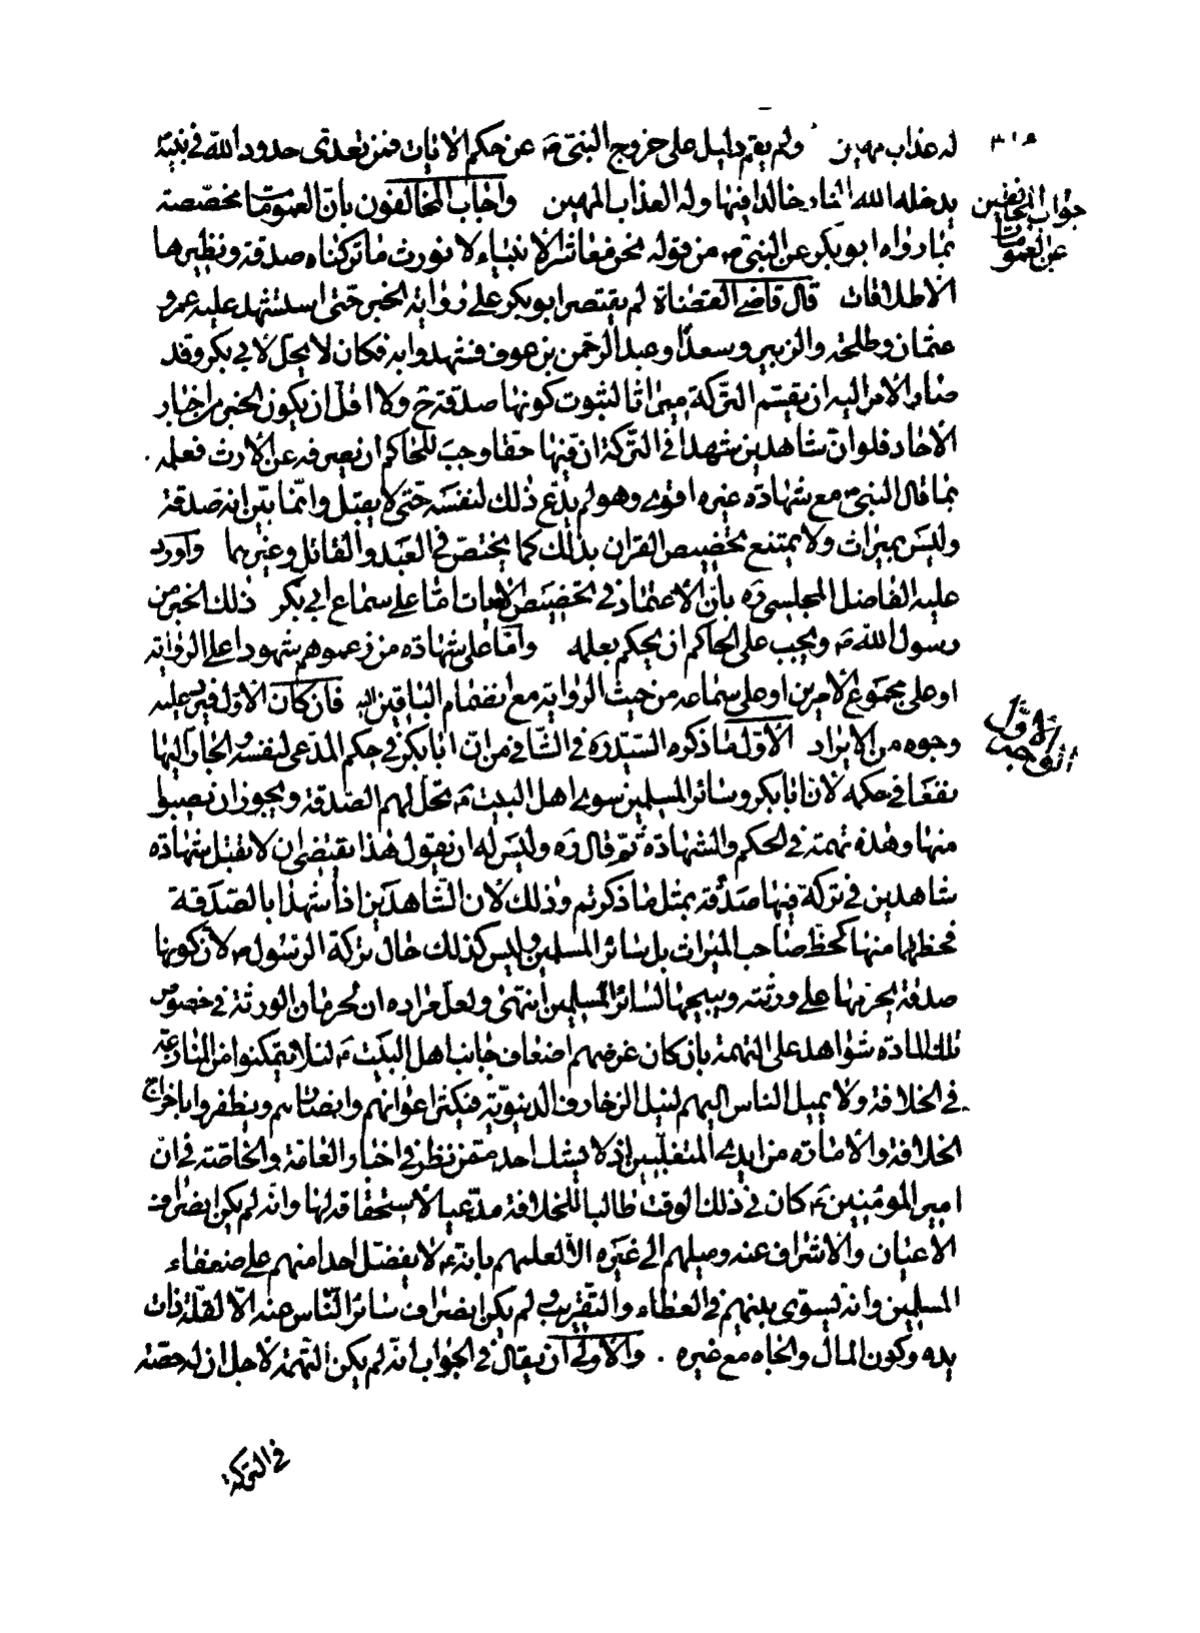 له عذاب مهين ولم يقم دليل على خروج النبيّ ص عن حكم الآيات فمن تعدّى حدود الله في نبيّه
يدخله الله النار خالدا فيها وله العذاب المهين وأجاب المخالفون بأنّ العمومات مخصّصة
جواب المخالفين
عن العمومات
بما رواه ابو بكر عن النبيّ ص من قوله نحن معاشر الأنبياء لا نورث ما تركناه صدقة ونظيرها
الاطلاقات قال قاضي القضاة لم يقتصر ابو بكر على رواية الخبر حتى استشهد عليه عمر و
عثمان وطلحة والزبير وسعدا وعبد الرّحمن بن عوف فشهدوا به فكان لا يحلّ لابي بكر وقد
صار الأمر اليه ان يقسّم التركة ميراثا لثبوت كونها صدقة ح ولا اقلّ ان يكون الخبر من اخبار
الآحاد فلو انّ شاهدين شهدا في التركة ان فيها حقّا وجب للحاكم ان يصرفه عن الأرث فعلمه
بما قال النبيّ ص مع شهادة غيره اقوى وهو لم يدّع ذلك لنفسه حتّى لا يقبل وانّما بيّن انه صدقة
وليس بميراث ولا يمتنع تخصيص القرآن بذلك كما يختصّ في العبد والقاتل وغيرهما وأورد
عليه الفاضل المجلسي ره بأنّ الأعتماد في تخصيص الآيات امّا على سماع ابي بكر ذلك الخبر من
رسول الله ص ويجب على الحاكم ان يحكم بعلمه وامّا على شهادة من زعموهم شهودا على الرواية
او على مجموع الأمرين او على سماعه من حيث الرواية مع انضمام الباقين اليه فان كان الأوّل فيرد عليه
وجوه من الايراد الأوّل ما ذكره السيّد ره في الشافي من انّ ابا بكر في حكم المدّعى لنفسه والجارّ اليها
الوجه الأوّل
نفعا في حكمه لأن ابا بكر وسائر المسلمين سوى اهل البيت ع تحلّ لهم الصّدقة ويجوز ان يصيبوا
منها وهذه تهمة في الحكم والشهادة ثمّ قال ره وليس له ان يقول هذا يقتضى ان لا تقبل شهادة
شاهدين في تركة فيها صدقة بمثل ما ذكرتم وذلك لأن الشاهدين اذا شهدا بالصّدقة
فحظهما منها كحظّ صاحب الميراث بل سائر المسلمين وليس كذلك حال تركة الرسول ص لأن كونها
صدقة يحرمها على ورثته ويبيحها لسائر المسلمين انتهى ولعلّ مراده ان لحرمان الورثة في خصوص
تلك المادة شواهد على التهمة بأن كان غرضهم اضعاف جانب اهل البيت ع لئلا يتمكنوا من المنازعة
في الخلافة ولا يميل الناس اليهم لنيل الزخارف الدنيويّة فيكثر اعوانهم وانصارهم ويظفروا باخراج
الخلافة والأمارة من ايدي المتغلّبين اذ لا يشك احد ممّن نظر في اخبار العامّة والخاصّة في انّ
امير المؤمنين ع كان في ذلك الوقت طالبا للخلافة مدّعيا لاستحقاقه لها وانّه لم يكن انصراف
الأعيان والأشراف عنه وميلهم الى غيره الاّ لعلمهم بانّه ع لا يفضل احدا منهم على ضعفاء
المسلمين وانه يسوّى بينهم في العطاء والتقريب ولم يكن انصراف سائر النّاس عنه الاّ لقلّة ذات
يده وكون المال والجاه مع غيره . والأولى ان يقال في الجواب انّه لم يكن التهمة لأجل ان له حصّة
في التركة